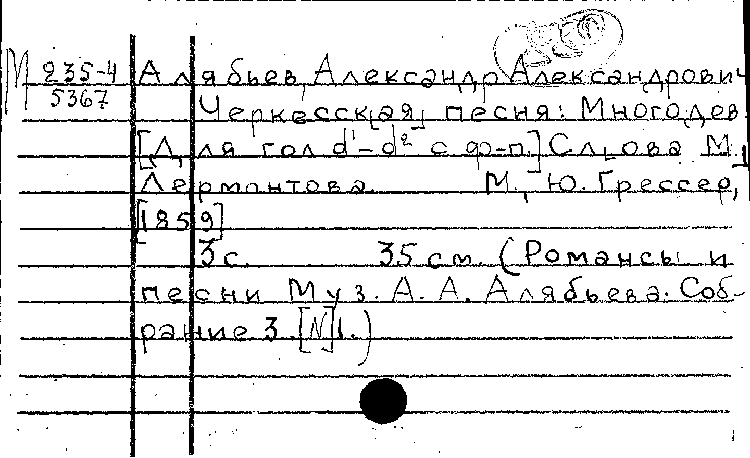 М 235-4 Алябьев, Александр Александрович
5367 Черкесск[ая] песня: Многодев
[Для гол d¹-d² с ф-п.] Сл[ова М.]
Лермонтова. М., Ю. Грессер,
[1859]
3 с. 35 см. (Романсы и
песни Муз. А. А. Алябьева. Соб-
рание 3. [N] 1.)